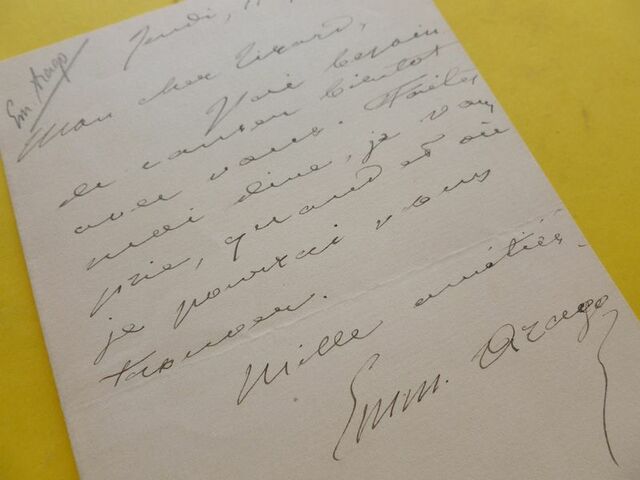 Em. Arago
Jeudi,
Mon cher Tirard,
J'ai besoin
de causer bientôt
avec vous. Faites
moi dire, je vous
prie, quand et où
je pourrai vous
trouver.
Mille amitiés.
Emm. Arago